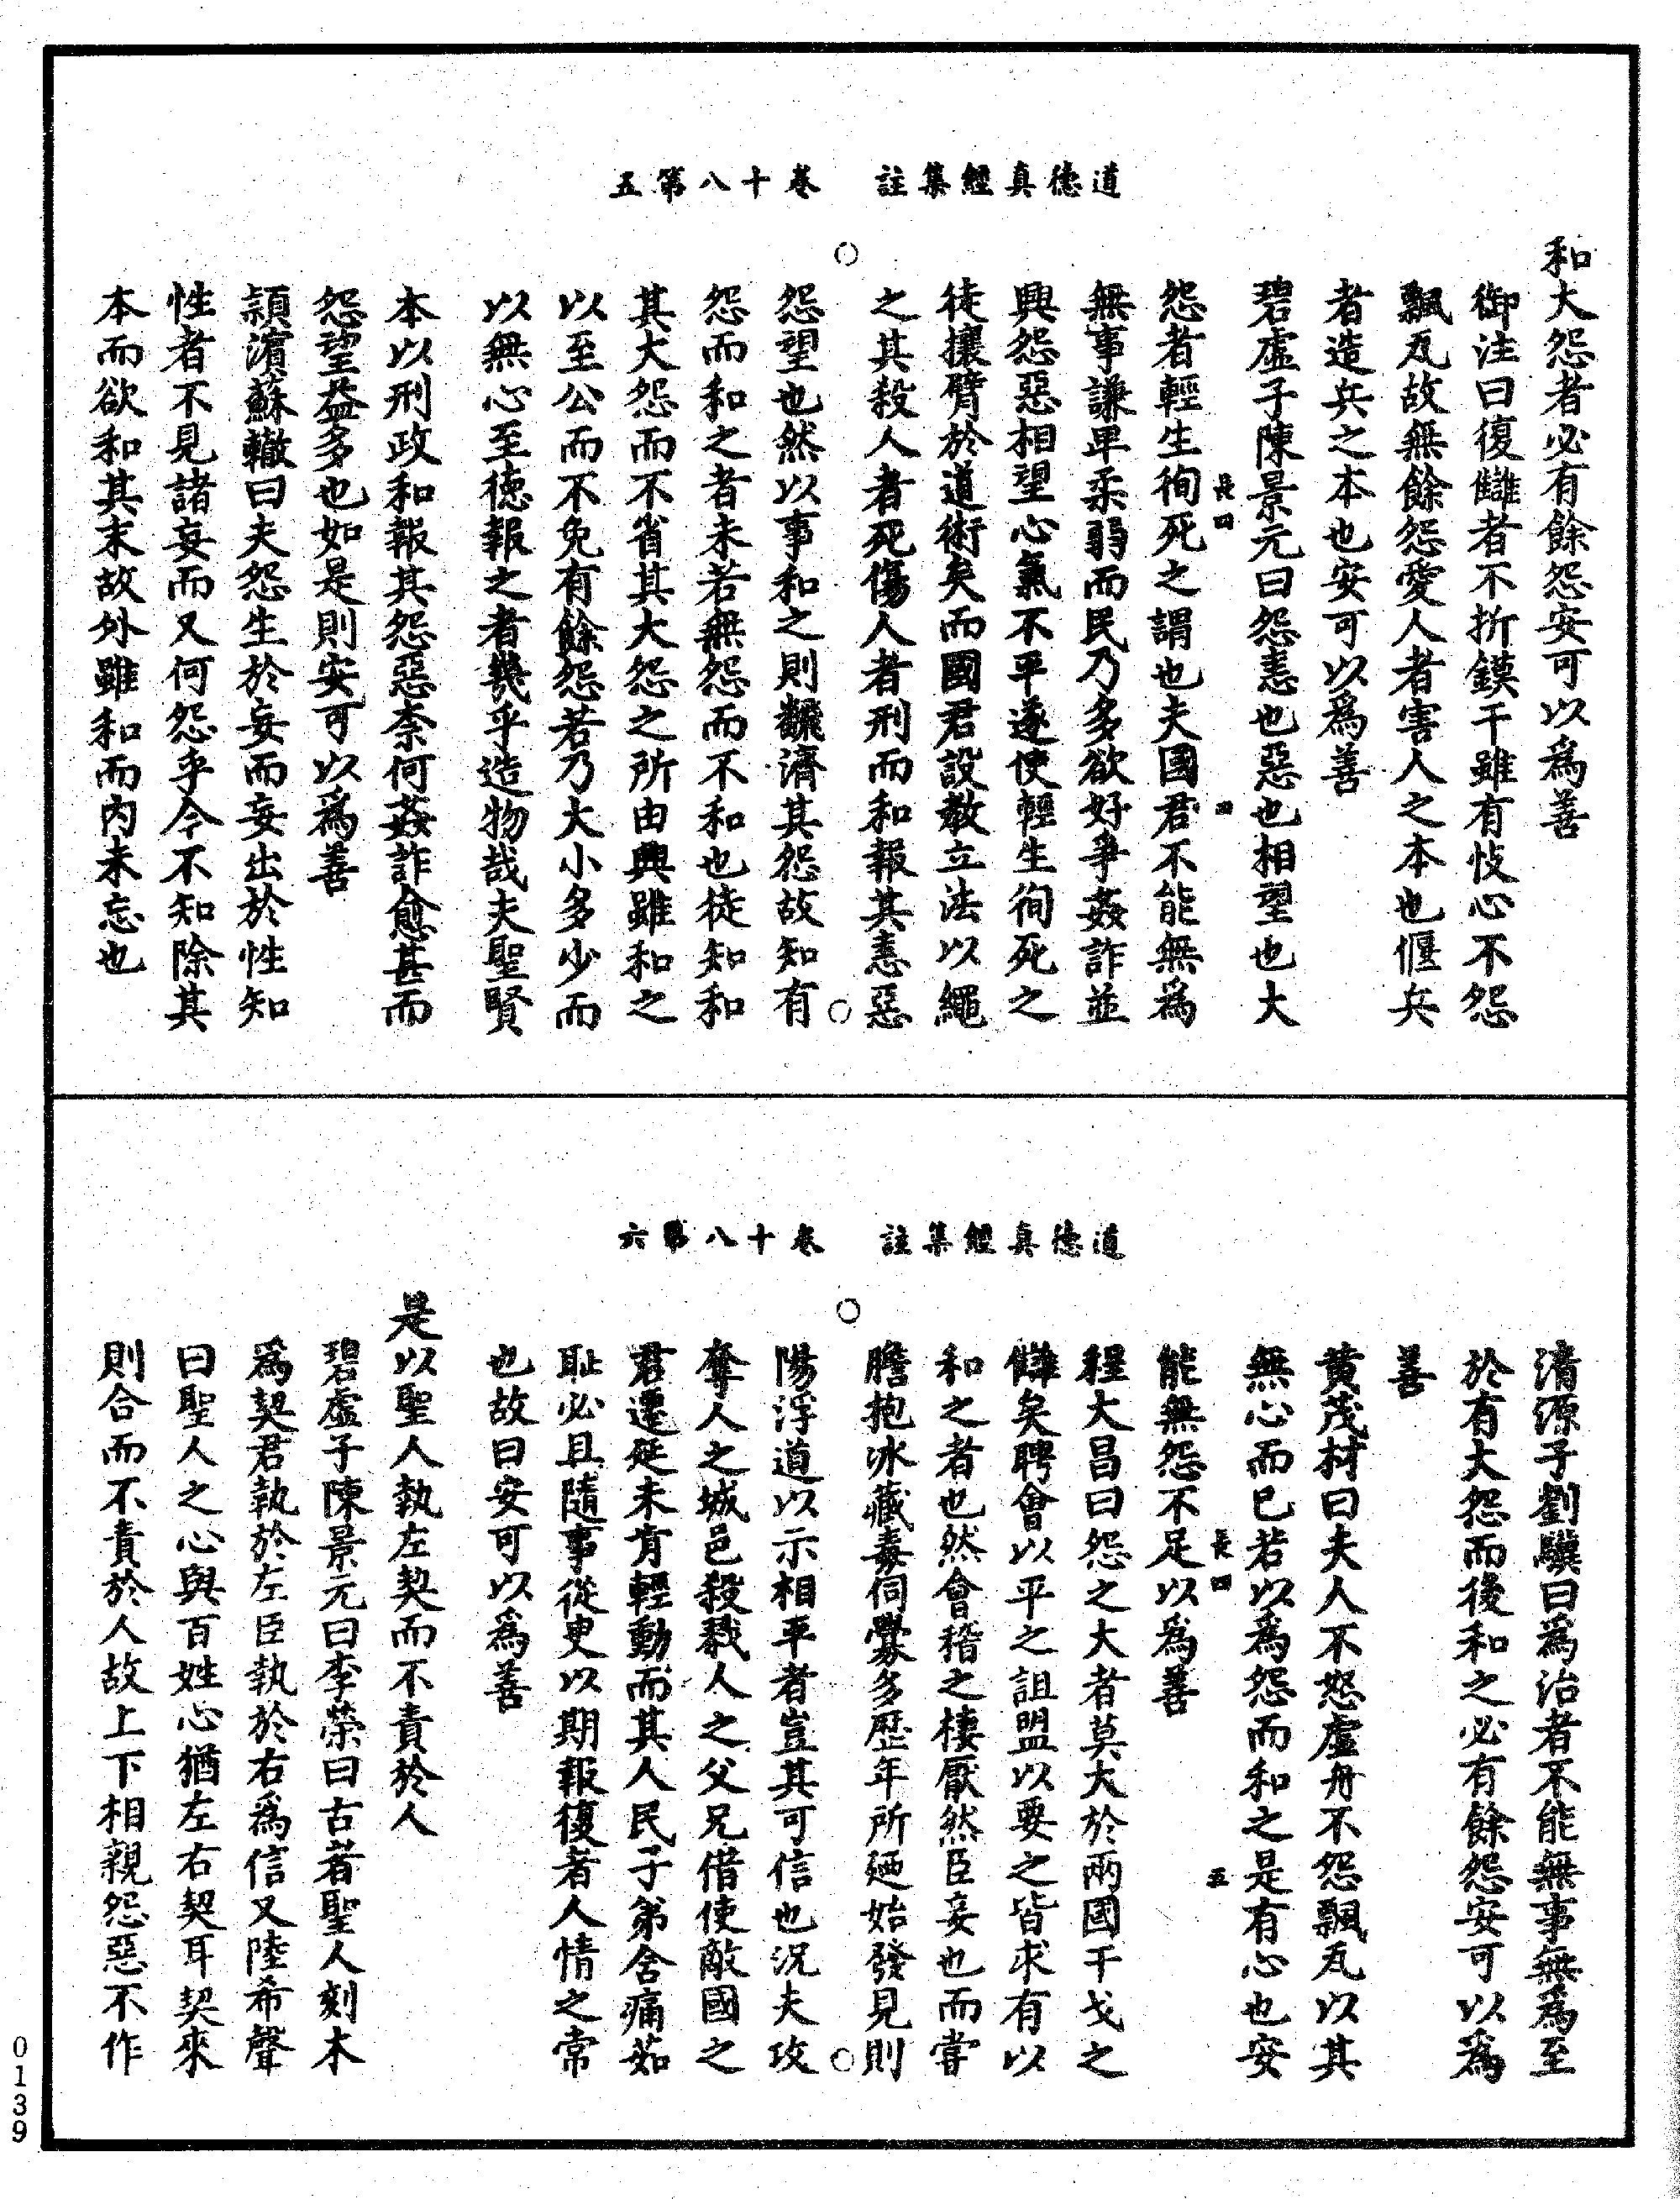 道德真經集註　卷十八第五
和大怨者必有餘怨安可以爲善
御注曰復讎者不折鏌干雖有忮心不怨
飄瓦故無餘怨愛人者害人之本也偃兵
者造兵之本也安可以爲善
碧虛子陳景元曰怨恚也惡也相望也大
長四
四
怨者輕生徇死之謂也夫國君不能無爲
無事謙卑柔弱而民乃多欲好爭姦詐並
興怨惡相望心氣不平遂使輕生徇死之
徒攘臂於道術矣而國君設教立法以繩
之其殺人者死傷人者刑而和報其恚惡
怨望也然以事和之則觀濟其怨故知有
怨而和之者未若無怨而不和也徒知和
其大怨而不省其大怨之所由興雖和之
以至公而不免有餘怨若乃大小多少而
以無心至德報之者幾乎造物哉夫聖賢
本以刑政和報其怨惡柰何姦詐愈甚而
怨望益多也如是則安可以爲善
頴濱蘇轍曰夫怨生於妄而妄出於性知
性者不見諸妄而又何怨乎今不知除其
本而欲和其末故外雖和而內未忘也
道德真經集註　卷十八第六
清源子劉驥曰爲治者不能無事無爲至
於有大怨而後和之必有餘怨安可以爲
善
黃茂材曰夫人不怒虛舟不怨飄瓦以其
無心而已若以爲怨而和之是有心也安
長四
五
能無怨不足以爲善
程大昌曰怨之大者莫大於兩國干戈之
讎矣聘會以平之詛盟以要之皆求有以
和之者也然會稽之棲厭然臣妾也而嘗
膽抱冰藏毒伺釁多歷年所迺始發見則
陽浮道以示相平者豈其可信也況夫攻
奪人之城邑殺戮人之父兄借使敵國之
君遷延未肯輕動而其人民子弟含痛茹
耻必且隨事從更以期報復者人情之常
也故曰安可以爲善
是以聖人執左契而不責於人
碧虛子陳景元曰李榮曰古者聖人刻木
爲契君執於左臣執於右爲信又陸希聲
曰聖人之心與百姓心猶左右契耳契來
則合而不責於人故上下相親怨惡不作
0139